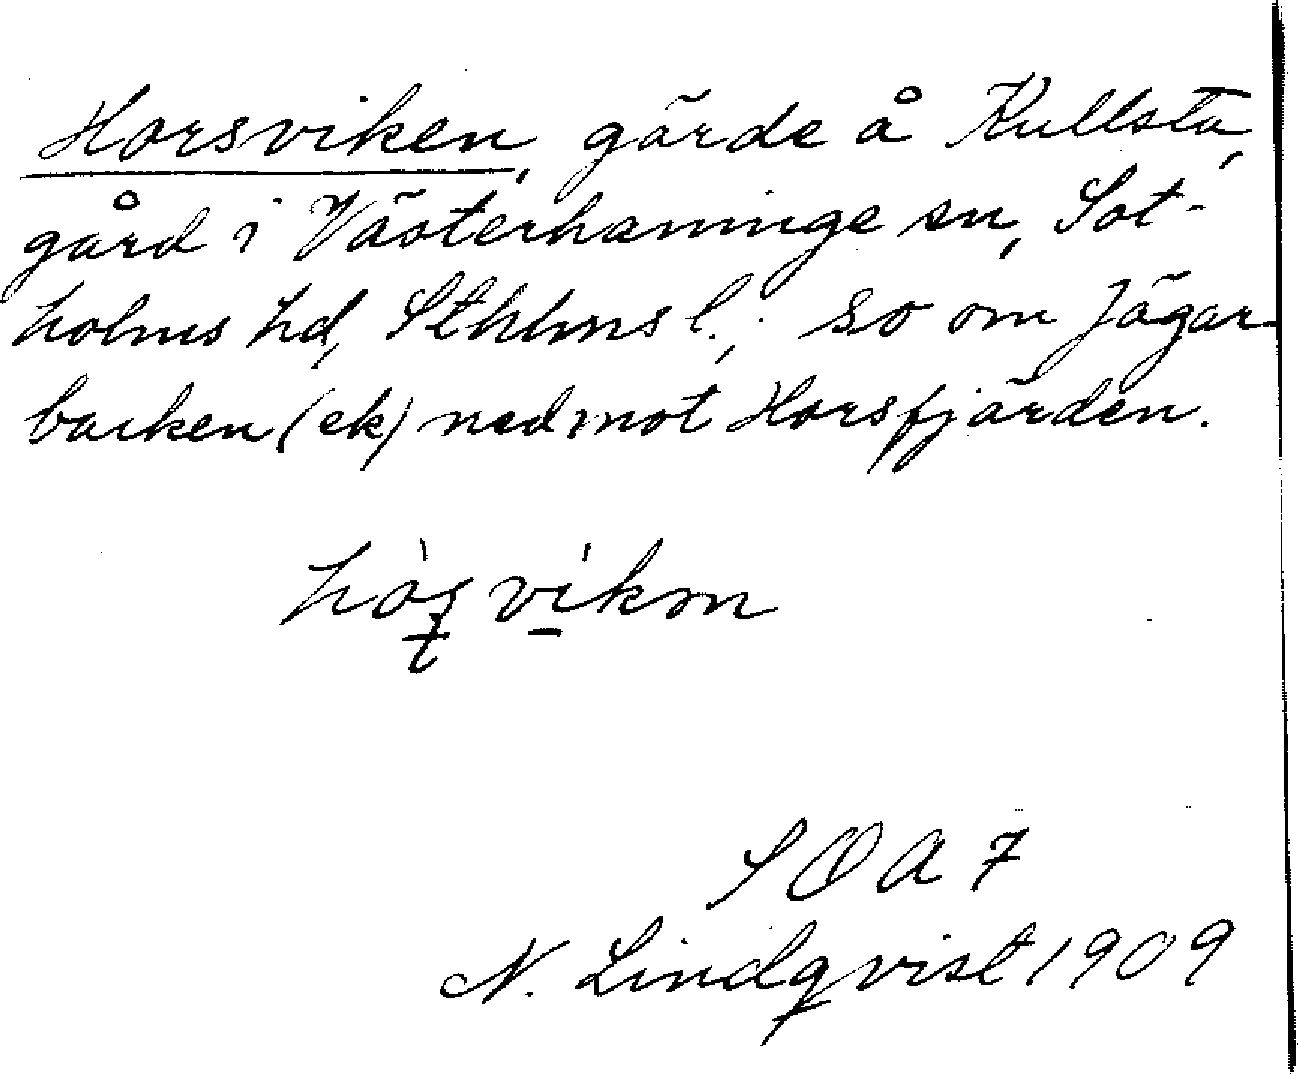 Horsviken, gärde å Kullsta,
gård i Västerhaninge sn, Sot-
holms hd, Sthlms l.; so om Jägar-
backen (ek) ned mot Horsfjärden.
SOA 7
N. Lindqvist 1909